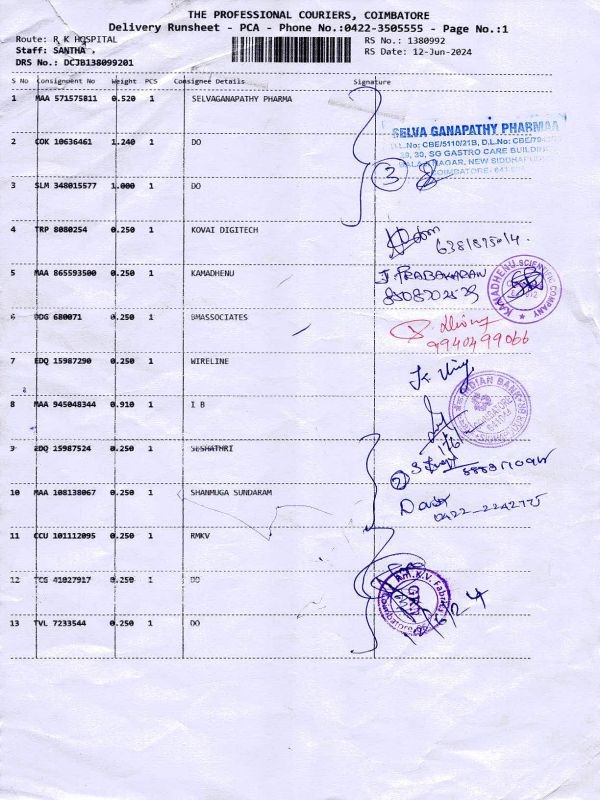 THE PROFESSIONAL COURIERS, COIMBATORE
Delivery Runsheet - PCA - Phone No.:0422-3505555 - Page No.:1
Route: R K HOSPITAL
RS No.: 1380992
Staff: SANTHA .
RS Date: 12-Jun-2024
DRS No.: DCJB138099201
S No Consignment No Weight PCS Consignee Details Signature
1 MAA 571575811 0.520 1 SELVAGANAPATHY PHARMA
SELVA GANAPATHY PHARMAA
D.L.No: CBE/5110/21B, D.L.No: CBE/
30, SG GASTRO CARE BUILDING
NAGAR, NEW SIDDHAPUDUR
COIMBATORE- 641
2 COK 10636461 1.240 1 DO
3
3 SLM 348015577 1.000 1 DO
4 TRP 8080254 0.250 1 KOVAI DIGITECH
6381875014.
5 MAA 865593500 0.250 1 KAMADHENU
J. PRABAKARAN
8508702529
KAMADHENU SCIENTIFIC COMPANY
6 DDG 680071 0.250 1 BMASSOCIATES
9940499066
7 EDQ 15987290 0.250 1 WIRELINE
8 MAA 945048344 0.910 1 I B
INDIAN BANK
9 EDQ 15987524 0.250 1 SESHATHRI
2
10 MAA 108138067 0.250 1 SHANMUGA SUNDARAM
0422-2242775
11 CCU 101112095 0.250 1 RMKV
12 TCG 41027917 0.250 1 DO
Rm.K.V. Fabrics
13 TVL 7233544 0.250 1 DO